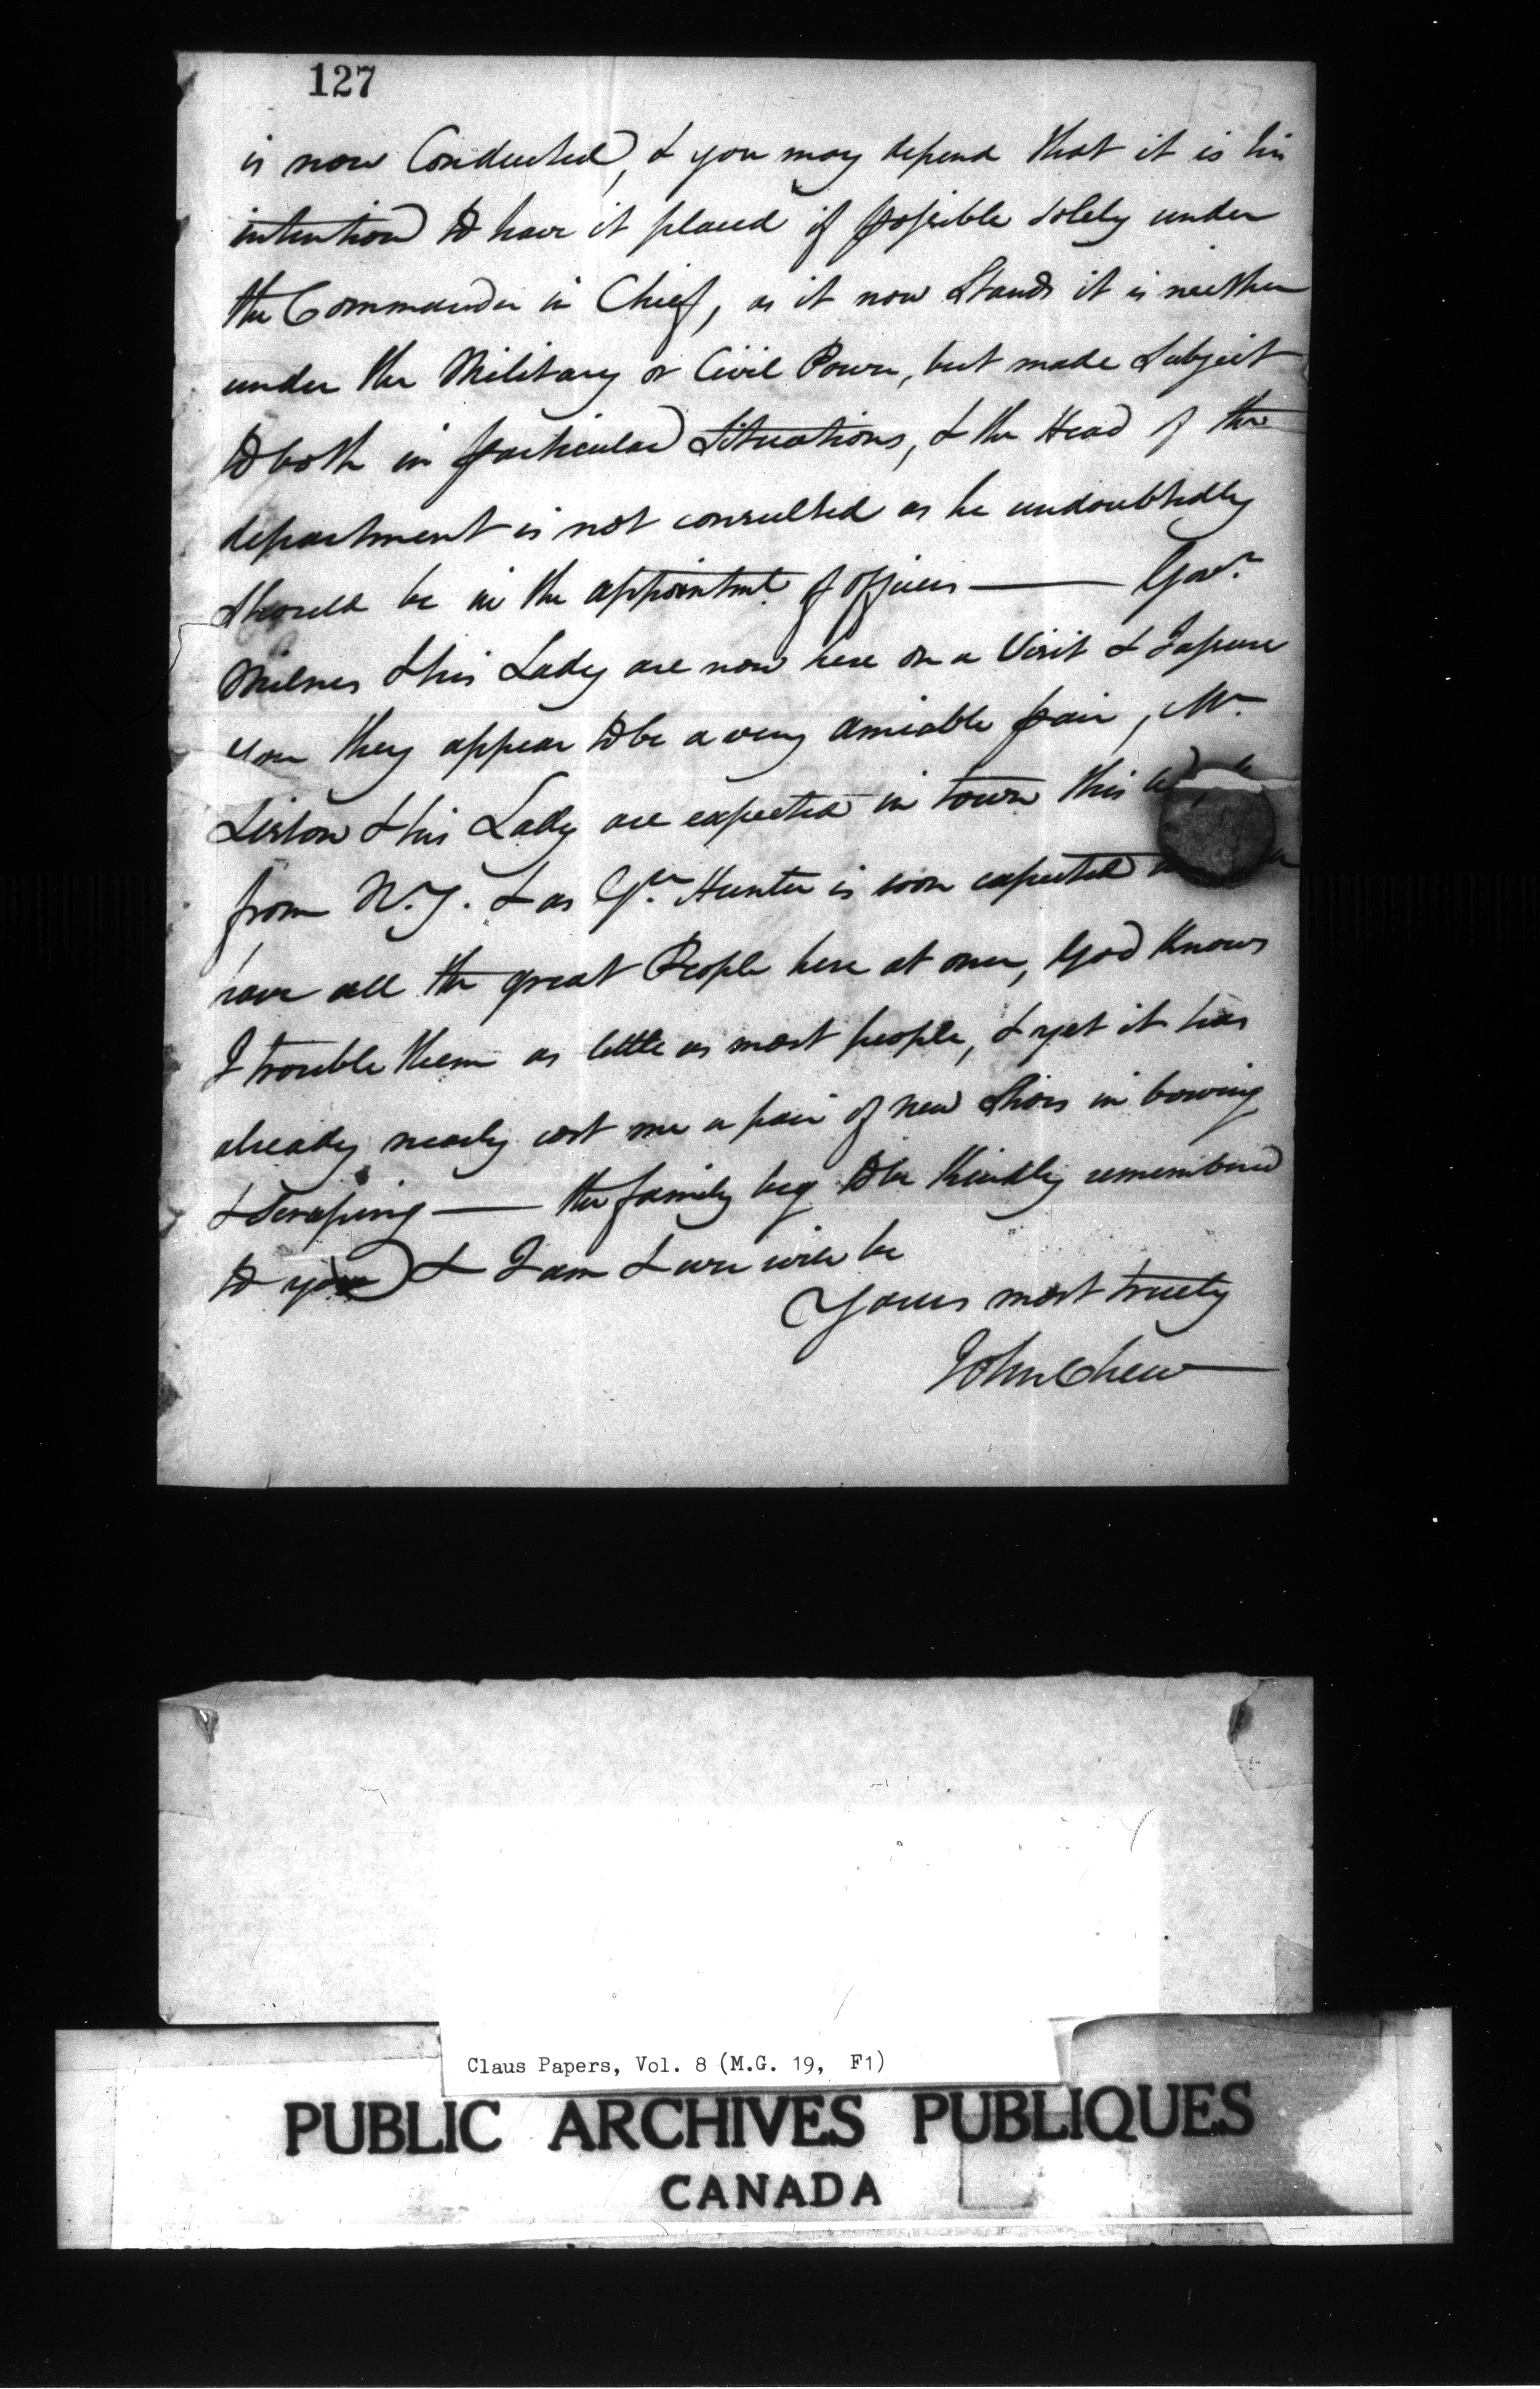 127
is now Conducted, & you may depend that it is his
intention to have it placed if possible solely under
the Commander in Chief, as it now Stands it is neither
under the Military or Civil Power, but made Subject
to both in particular Situations, & the Head of the
department is not consulted as he undoubtedly
should be in the appointmt. of officers — Govr.
Milnes & his Lady are now here on a Visit & I assure
you they appear to be a very amiable pair, Mr.
Liston & his Lady are expected in town this
from N.Y. & as Gl. Hunter is soon expected
have all the great People here at once, God Knows
I trouble them as little as most people, & yet it has
already nearly cost me a pair of new Shoes in bowing
& Scraping — the family beg to be kindly remembered
to you & I am & ever will be
Yours most truely
John Chew
Claus Papers, Vol. 8 (M.G. 19, F1)
PUBLIC ARCHIVES PUBLIQUES
CANADA